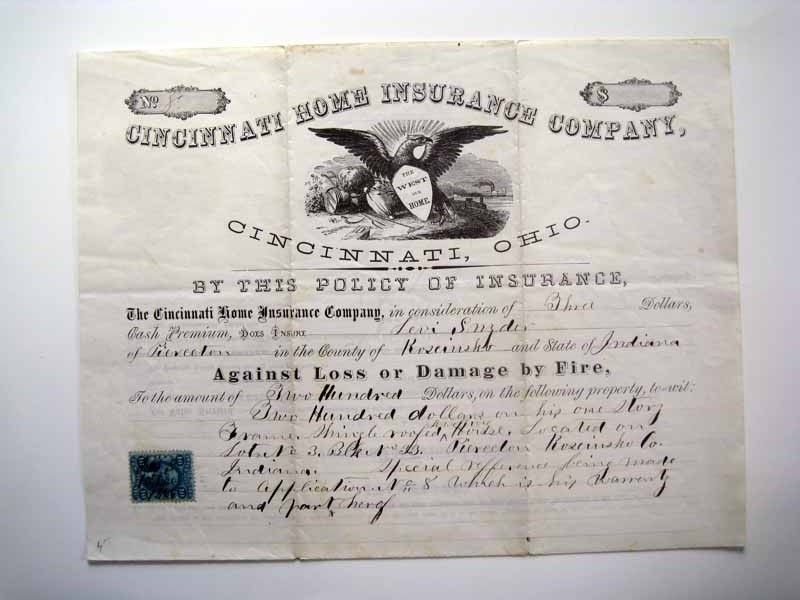 No
$
CINCINNATI HOME INSURANCE COMPANY,
THE
WEST
OUR
HOME.
CINCINNATI, OHIO.
BY THIS POLICY OF INSURANCE,
The Cincinnati Home Insurance Company, in consideration of Three Dollars,
Cash Premium, DOES INSURE Levi Snyder
of Pierceton in the County of Kosciusko and State of Indiana
Against Loss or Damage by Fire,
To the amount of Two Hundred Dollars, on the following property, to-wit:
Two Hundred dollars on his one Story
Frame Shingle roofed House, Located on
Lot No 3, Blk No 23. Pierceton Kosciusko Co.
Indiana. Special reference being made
to Application No 8 which is his Warranty
and part herof